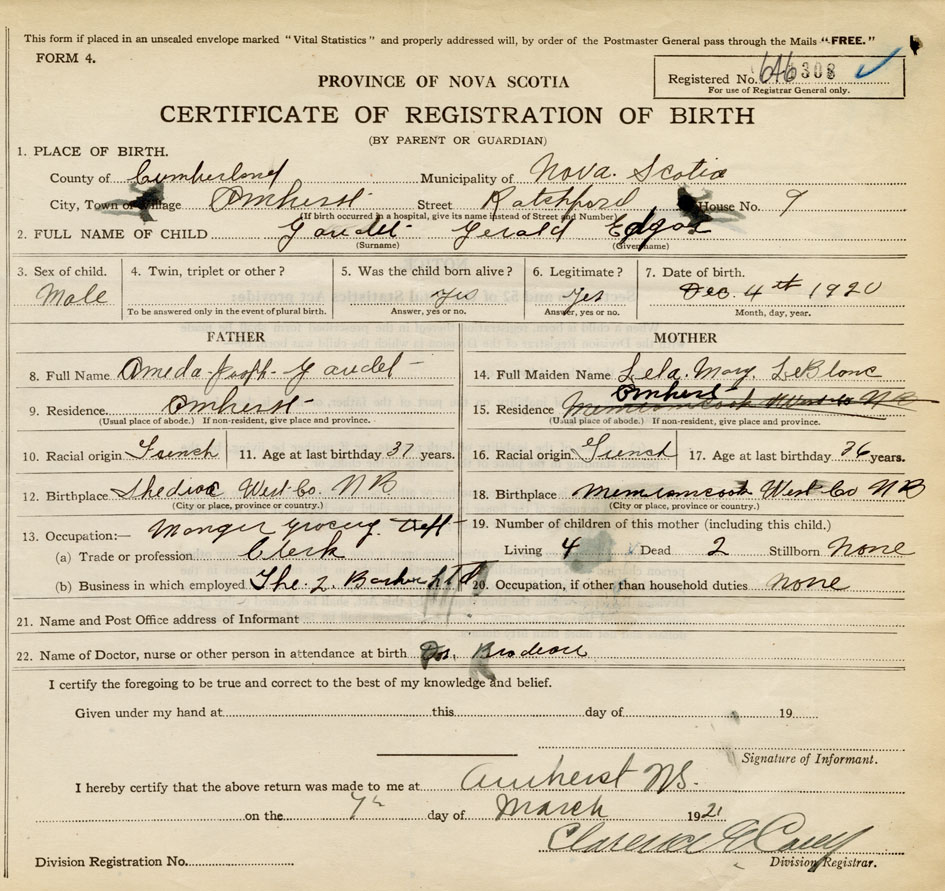 This form if placed in an unsealed envelope marked "Vital Statistics" and properly addressed will, by order of the Postmaster General pass through the Mails "FREE."
FORM 4.
PROVINCE OF NOVA SCOTIA
Registered No. 308
For use of Registrar General only.
CERTIFICATE OF REGISTRATION OF BIRTH
(BY PARENT OR GUARDIAN)
1. PLACE OF BIRTH.
County of Cumberland Municipality of Nova. Scotia
City, Town or Village Amherst Street Ratchford House No. 9
(If birth occurred in a hospital, give its name instead of Street and Number)
2. FULL NAME OF CHILD Gaudet Gerald Edgar
(Surname) (Given name)
3. Sex of child. 4. Twin, triplet or other? 5. Was the child born alive? 6. Legitimate? 7. Date of birth.
Male yes Yes Dec. 4th 1920
To be answered only in the event of plural birth. Answer, yes or no. Answer, yes or no. Month, day, year.
FATHER MOTHER
8. Full Name Ameda Joseph Gaudet 14. Full Maiden Name Lela. Mary. LeBlanc
Amherst
9. Residence. Amherst 15. Residence Memramcook West Co N B
(Usual place of abode.) If non-resident, give place and province. (Usual place of abode.) If non-resident, give place and province.
10. Racial origin French 11. Age at last birthday 37 years. 16. Racial origin French 17. Age at last birthday 36 years.
12. Birthplace Shediac West Co. N B 18. Birthplace Memramcook West Co N B
(City or place, province or country.) (City or place, province or country.)
13. Occupation:— Manger grocery. Dept 19. Number of children of this mother (including this child.)
(a) Trade or profession Clerk Living 4 Dead 2 Stillborn None
(b) Business in which employed The. 2 Barker Ltd 20. Occupation, if other than household duties none
21. Name and Post Office address of Informant
22. Name of Doctor, nurse or other person in attendance at birth Dr.
I certify the foregoing to be true and correct to the best of my knowledge and belief.
Given under my hand at this day of 19
Signature of Informant.
I hereby certify that the above return was made to me at Amherst NS.
on the 7th day of March 1921
Clarence
Division Registration No. Division Registrar.